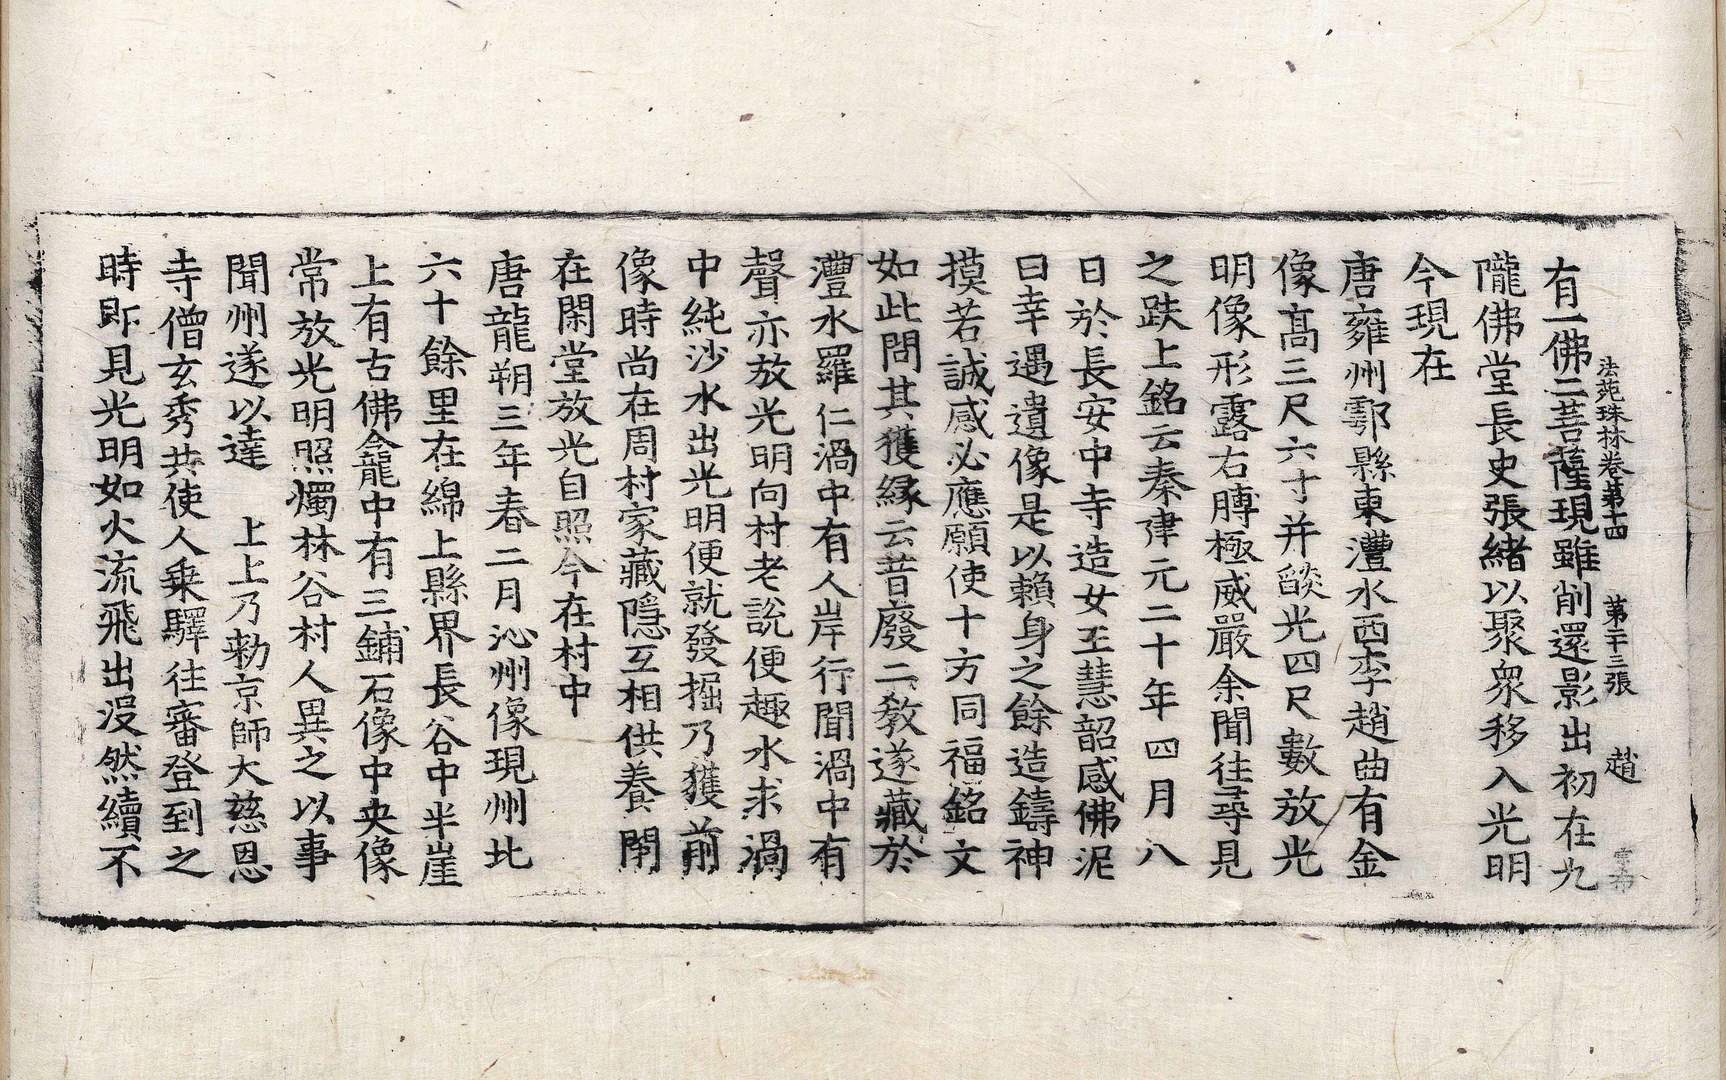 法苑珠林卷第十四　第二十三張　趙
有一佛二菩薩現雖削還影出初在九
隴佛堂長史張緒以聚衆移入光明
今現在
唐雍州鄠縣東灃水西李趙曲有金
像高三尺六寸并𦦨光四尺數放光
明像形露右膊極威嚴余聞往尋見
之趺上銘云秦建元二十年四月八
日於長安中寺造女王慧韶感佛泥
曰幸遇遺像是以賴身之餘造鑄神
摸若誠感必應願使十方同福銘文
如此問其獲緣云昔廢二敎遂藏於
灃水羅仁渦中有人岸行聞渦中有
聲亦放光明向村老說便趣水求渦
中純沙水出光明便就發掘乃獲前
像時尚在周村家藏隱互相供養閇
在閑堂放光自照今在村中
唐龍朔三年春二月沁州像現州北
六十餘里在綿上縣界長谷中半崖
上有古佛龕龕中有三鋪石像中央像
常放光明照燭林谷村人異之以事
聞州遂以達　上上乃勅京師大慈恩
寺僧玄秀共使人乘驛往審登到之
時即見光明如火流飛出没然續不